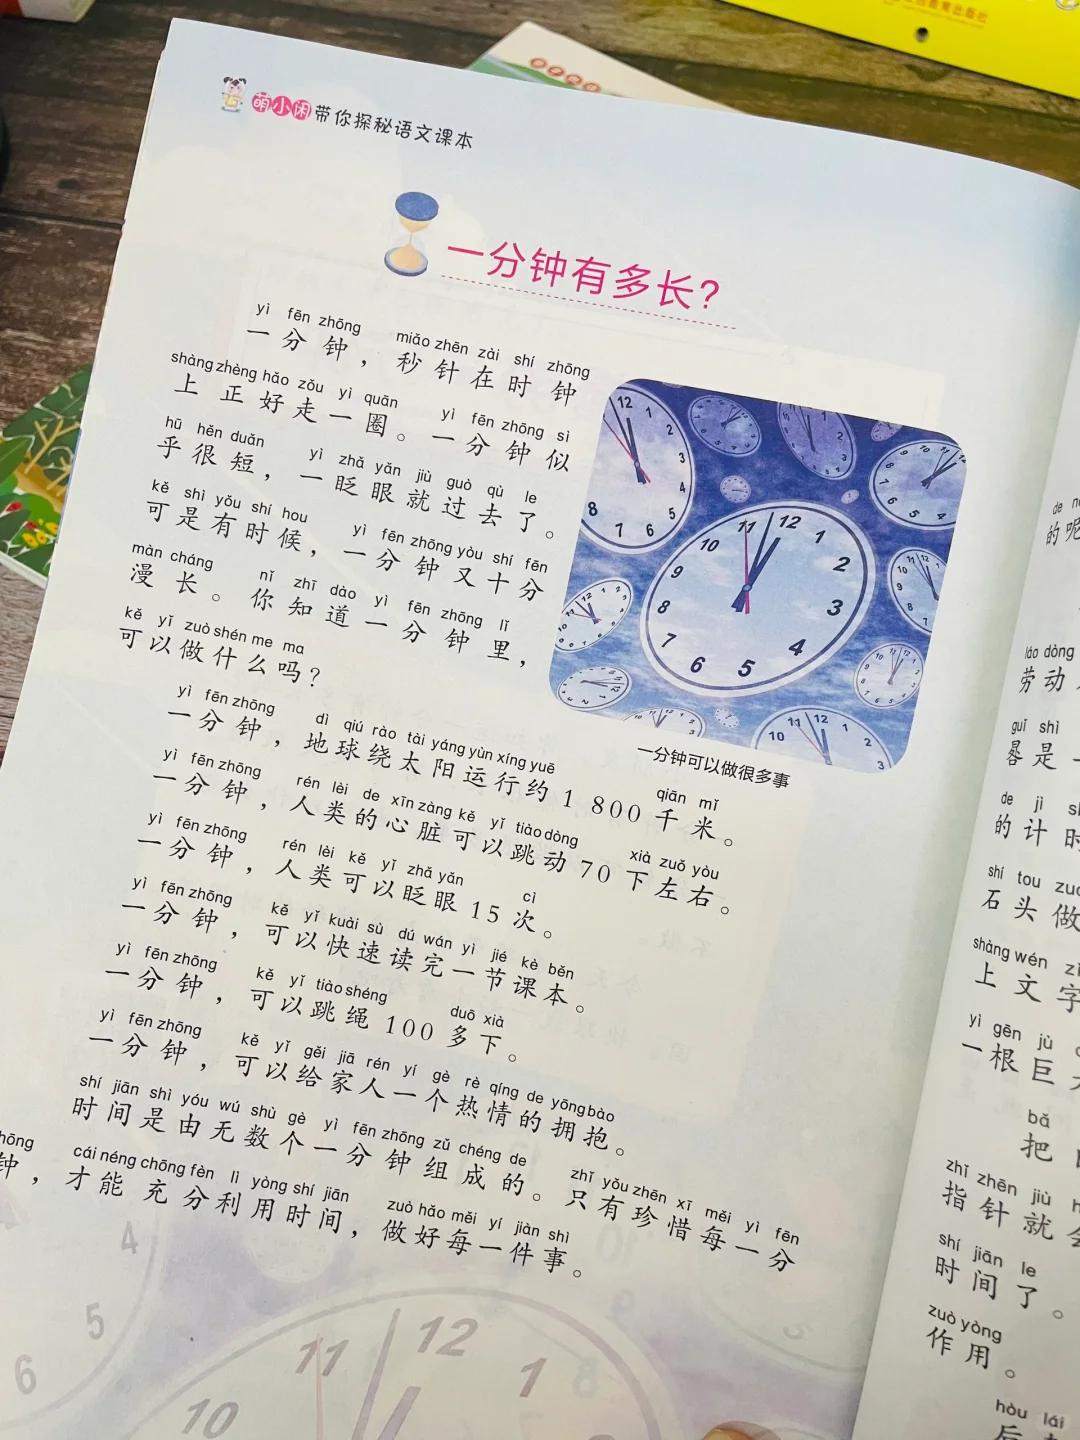 萌小闲带你探秘语文课本
一分钟有多长？
yì fēn zhōng miǎo zhēn zài shí zhōng
一分钟，秒针在时钟
shàng zhèng hǎo zǒu yì quān yì fēn zhōng sì
上正好走一圈。一分钟似
hū hěn duǎn yì zhǎ yǎn jiù guò qù le
乎很短，一眨眼就过去了。
kě shì yǒu shí hou yì fēn zhōng yòu shí fēn
可是有时候，一分钟又十分
màn cháng nǐ zhī dào yì fēn zhōng lǐ
漫长。你知道一分钟里，
kě yǐ zuò shén me ma
可以做什么吗？
一分钟可以做很多事
yì fēn zhōng dì qiú rào tài yáng yùn xíng yuē qiān mǐ
一分钟，地球绕太阳运行约1 800千米。
yì fēn zhōng rén lèi de xīn zàng kě yǐ tiào dòng xià zuǒ yòu
一分钟，人类的心脏可以跳动70下左右。
yì fēn zhōng rén lèi kě yǐ zhǎ yǎn cì
一分钟，人类可以眨眼15次。
yì fēn zhōng kě yǐ kuài sù dú wán yì jié kè běn
一分钟，可以快速读完一节课本。
yì fēn zhōng kě yǐ tiào shéng duō xià
一分钟，可以跳绳100多下。
yì fēn zhōng kě yǐ gěi jiā rén yí gè rè qíng de yōng bào
一分钟，可以给家人一个热情的拥抱。
shí jiān shì yóu wú shù gè yì fēn zhōng zǔ chéng de zhǐ yǒu zhēn xī měi yì fēn
时间是由无数个一分钟组成的。只有珍惜每一分
zhōng cái néng chōng fèn lì yòng shí jiān zuò hǎo měi yí jiàn shì
钟，才能充分利用时间，做好每一件事。
的呢
láo dòng
劳动
guǐ shì
晷是
de jì
的计时
shí tou zuò
石头做
shàng wén
上文字
yì gēn jù
一根巨
bǎ
把
zhǐ zhēn jiù
指针就会
shí jiān le
时间了。
zuò yòng
作用。
hòu lái